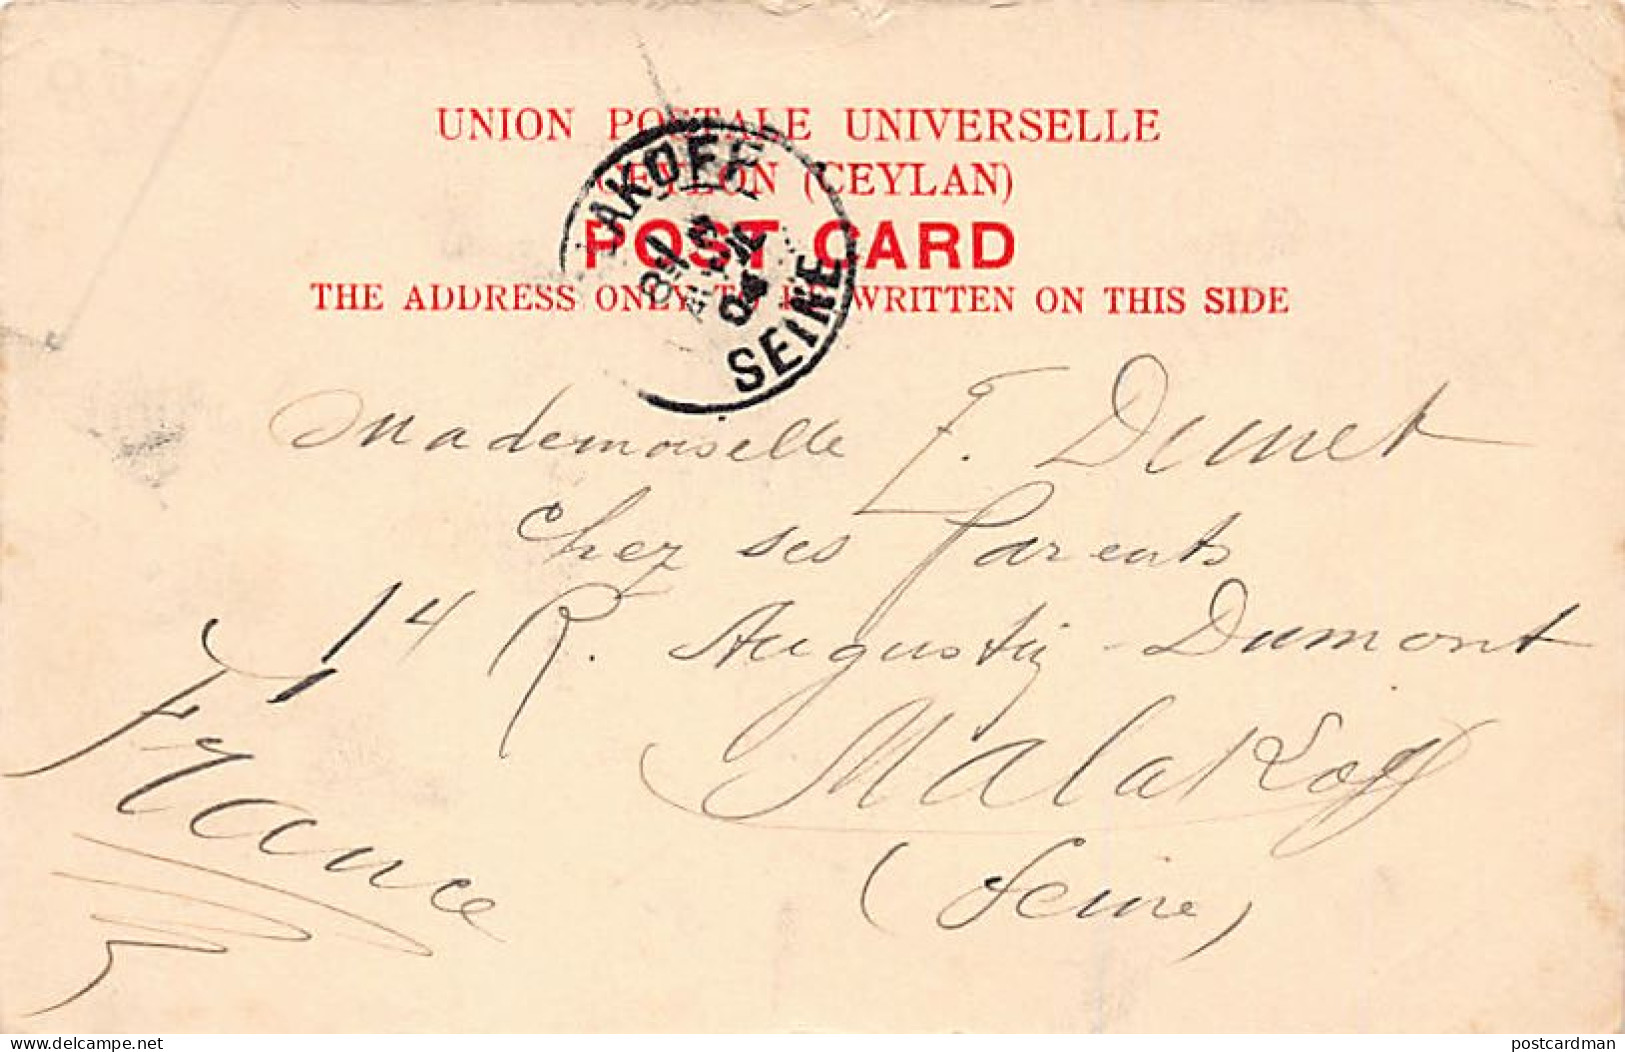 UNION POSTALE UNIVERSELLE
CEYLON (CEYLAN)
POST CARD
THE ADDRESS ONLY TO BE WRITTEN ON THIS SIDE
AKOFF
SEINE
04
Mademoiselle
Chez ses Parents
14 R. Augustin-Dumont
Malakoff
(Seine)
France
www.delcampe.net
postcardman